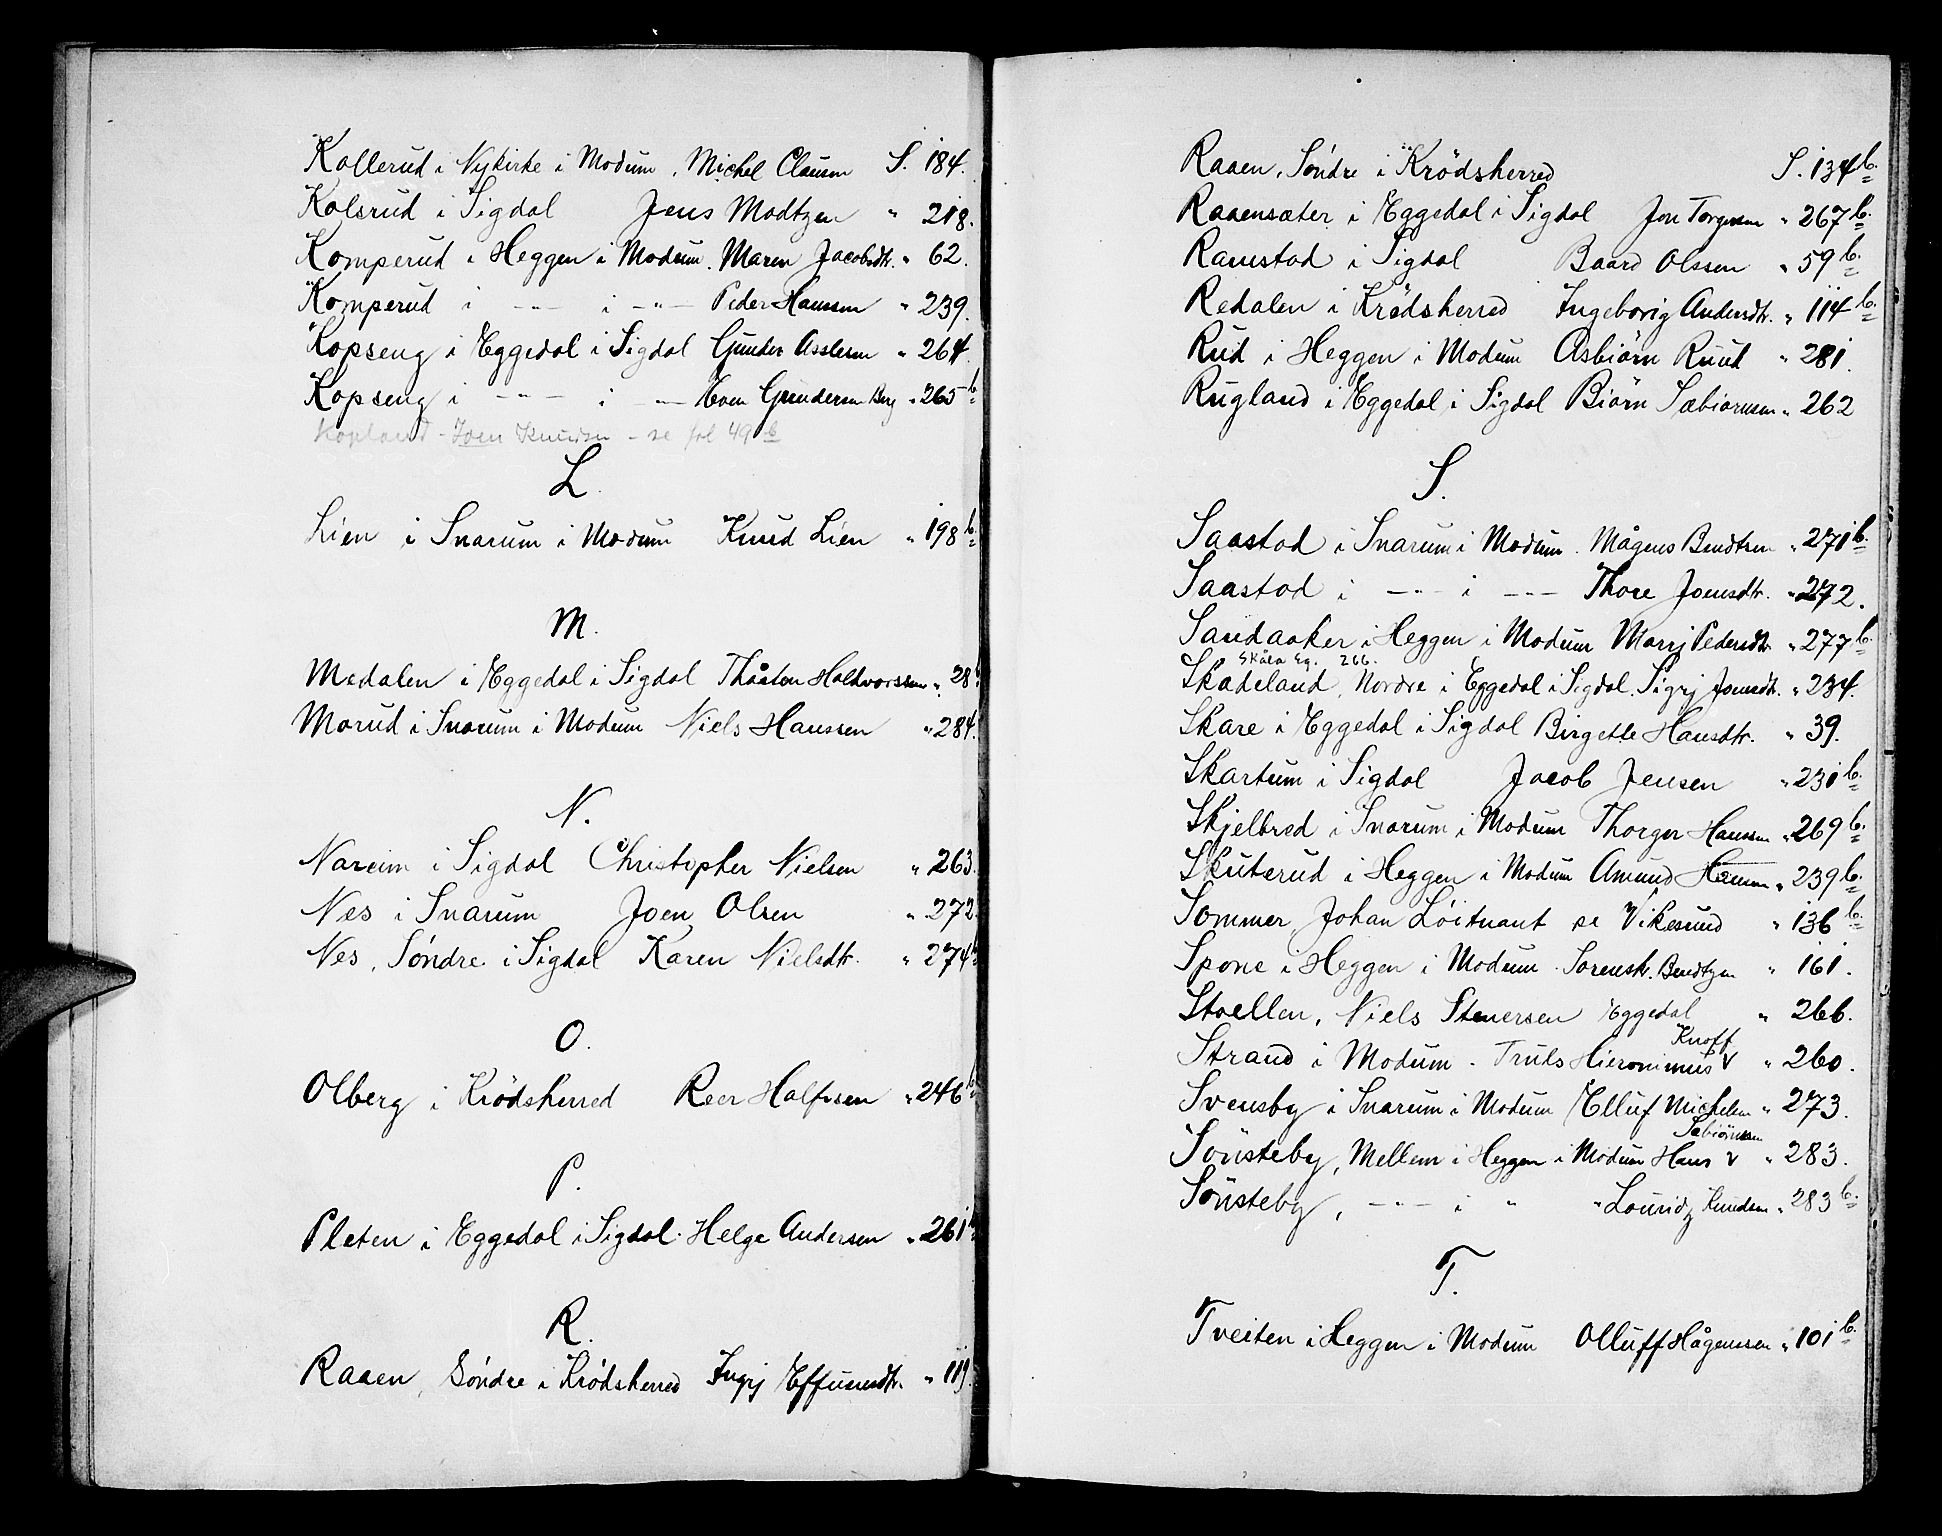 Kollerud i Nykirke i Modum, Michel Clausen S. 184.
Kolsrud i Sigdal Jens Madtzen " 218.
Komperud i Heggen i Modum. Maren Jacobsdtr. " 62.
Komperud i -"- i -"- Peder Hanssen " 239.
Kopseng i Eggedal i Sigdal Gunder Asslesen " 264.
Kopseng i -"- i -"- Even Gundersen Berg " 265 b.
Kopland - Joen Knudsen - se fol 49 b
L.
Lien i Snarum i Modum Knud Lien " 198 b.
M.
Medalen i Eggedal i Sigdal Thåsten Haldvorssen " 28 b
Morud i Snarum i Modum Niels Hanssen " 284.
N.
Nareim i Sigdal Christopher Nielsen " 263.
Nes i Snarum Joen Olsen " 272
Nes, Søndre i Sigdal Karen Nielsdtr. " 274 b
O.
Olberg i Krödsherred Reer Halfvsen " 246 b
P.
Pleten i Eggedal i Sigdal. Helge Andersen " 261 b
R.
Raaen, Søndre i Krødsherred Ingrj Effuensdtr. " 119.
Raaen, Søndre i Krödsherred S. 134 b.
Raaensæter i Eggedal i Sigdal Jon Torgersen " 267 b.
Ramstad i Sigdal Baard Olssen " 59 b.
Redalen i Krödsherred Ingeborig Andersdtr. " 114 b.
Rud i Heggen i Modum Asbiörn Ruud " 281.
Rugland i Eggedal i Sigdal Biörn Sæbiörnsen " 262
S.
Saastad i Snarum i Modum. Mågens Bendtsen " 271 b.
Saastad i -"- i -"- Thore Joensdtr. " 272.
Sandaaker i Heggen i Modum Marrj Pedersdtr. " 277 b.
Skåla Eg. 266.
Skadeland, Nordre i Eggedal i Sigdal. Sigrj Jonsdtr. " 234.
Skare i Eggedal i Sigdal Birgette Hansdtr. " 39.
Skartum i Sigdal Jacob Jensen " 231 b.
Skjelbred i Snarum i Modum Thorger Hanssen " 269 b.
Skuterud i Heggen i Modum Amund Hansen " 239 b.
Sommer, Johan Löitnant se Vikesund " 136 b.
Spone i Heggen i Modum Sorensk. Bendtzen " 161.
Stvellen, Niels Stenersen Eggedal " 266.
Knoff
Strand i Modum - Truls Hieronimus v " 260.
Svensby i Snarum i Modum Elluf Michelsen " 273.
Sæbiörnsen
Sönsteby, Mellem i Heggen i Modum Hans v " 283.
Sönsteby, -"- i " " Louridz Knudsen " 283 b.
T.
Tveiten i Heggen i Modum Olluff Hågenssen " 101 b.